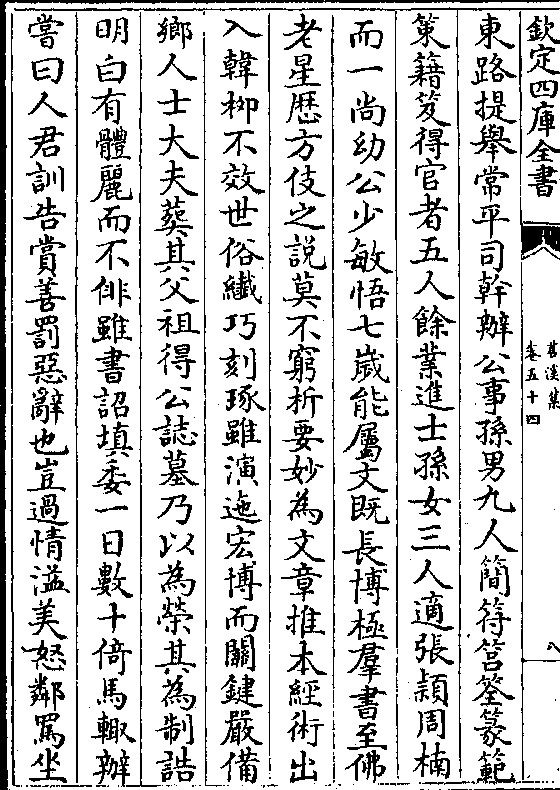 欽定四庫全書
苕溪集
卷五十四
八
東路提舉常平司幹辦公事孫男九人簡符筥筌篆範
策籍笈得官者五人餘業進士孫女三人適張頴周楠
而一尚幼公少敏悟七嵗能屬文既長博極羣書至佛
老星歴方伎之說莫不窮析要妙為文章推本經術出
入韓栁不效世俗纎巧刻琢雖演迤宏博而關鍵嚴備
鄉人士大夫葬其父祖得公誌墓乃以為榮其為制誥
明白有體麗而不俳雖書詔填委一日數十倚馬輙辦
嘗曰人君訓告賞善罰惡辭也豈過情溢美怒鄰罵坐